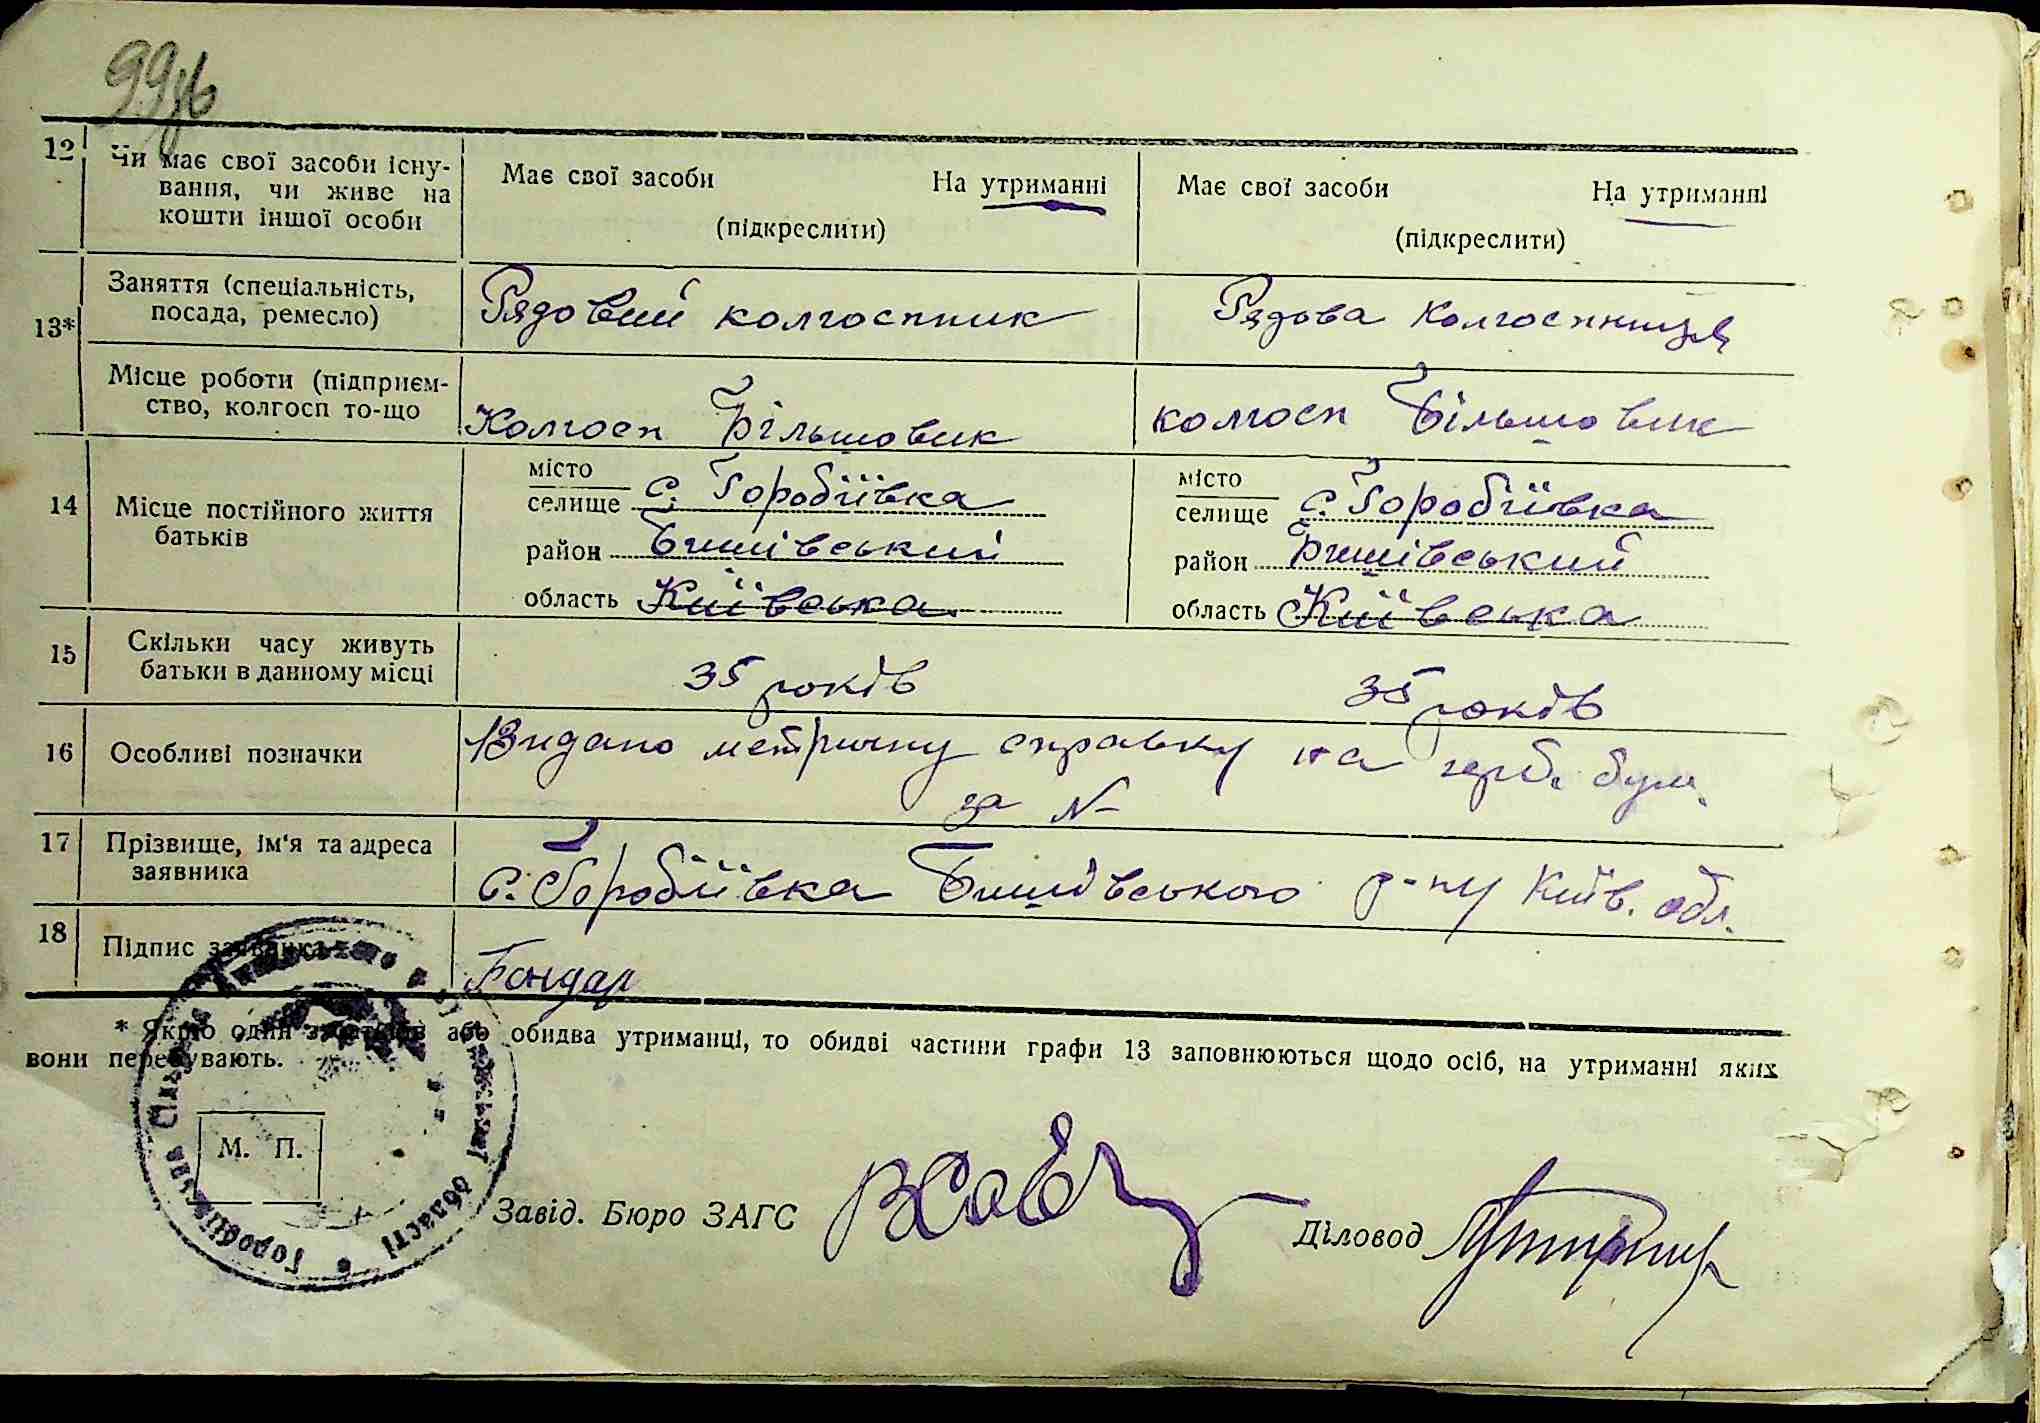 99зв
12 Чи має свої засоби існу-
вання, чи живе на
кошти іншої особи
Має свої засоби На утриманні
(підкреслити)
Має свої засоби На утриманні
(підкреслити)
13*
Заняття (спеціальність,
посада, ремесло)
Рядовий колгоспник
Рядова колгоспниця
Місце роботи (підприєм-
ство, колгосп то-що
Колгосп Більшовик
колгосп Більшовик
14 Місце постійного життя
батьків
місто
селище с. Горобіївка
район Бишівський
область Київська
місто
селище с. Горобіївка
район Бишівський
область Київська
15 Скільки часу живуть
батьки в данному місці
35 років
35 років
16 Особливі позначки
Видано метричну справку на герб. бум.
за №
17 Прізвище, ім'я та адреса
заявника
с. Горобіївка Бишівського р-ну Київ. обл.
18 Підпис заявника
Бондар
* Якщо один з батьків або обидва утриманці, то обидві частини графи 13 заповнюються щодо осіб, на утриманні яких
вони перебувають.
М. П.
Завід. Бюро ЗАГС
Діловод